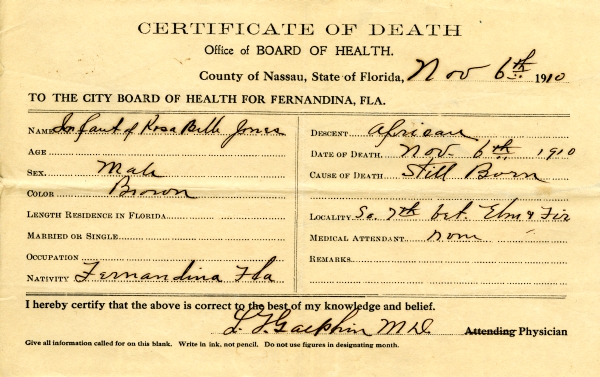 CERTIFICATE OF DEATH
Office of BOARD OF HEALTH.
County of Nassau, State of Florida, Nov 6th 1910
TO THE CITY BOARD OF HEALTH FOR FERNANDINA, FLA.
NAME Infant of Rosa Belle Jones
AGE
SEX. Male
COLOR Brown
LENGTH RESIDENCE IN FLORIDA
MARRIED OR SINGLE
OCCUPATION
NATIVITY Fernandina Fla
DESCENT African
DATE OF DEATH. Nov. 6th 1910
CAUSE OF DEATH Still Born
LOCALITY So. 7th bet. Elm & Fir
MEDICAL ATTENDANT none
REMARKS
I hereby certify that the above is correct to the best of my knowledge and belief.
M D Attending Physician
Give all information called for on this blank. Write in ink, not pencil. Do not use figures in designating month.